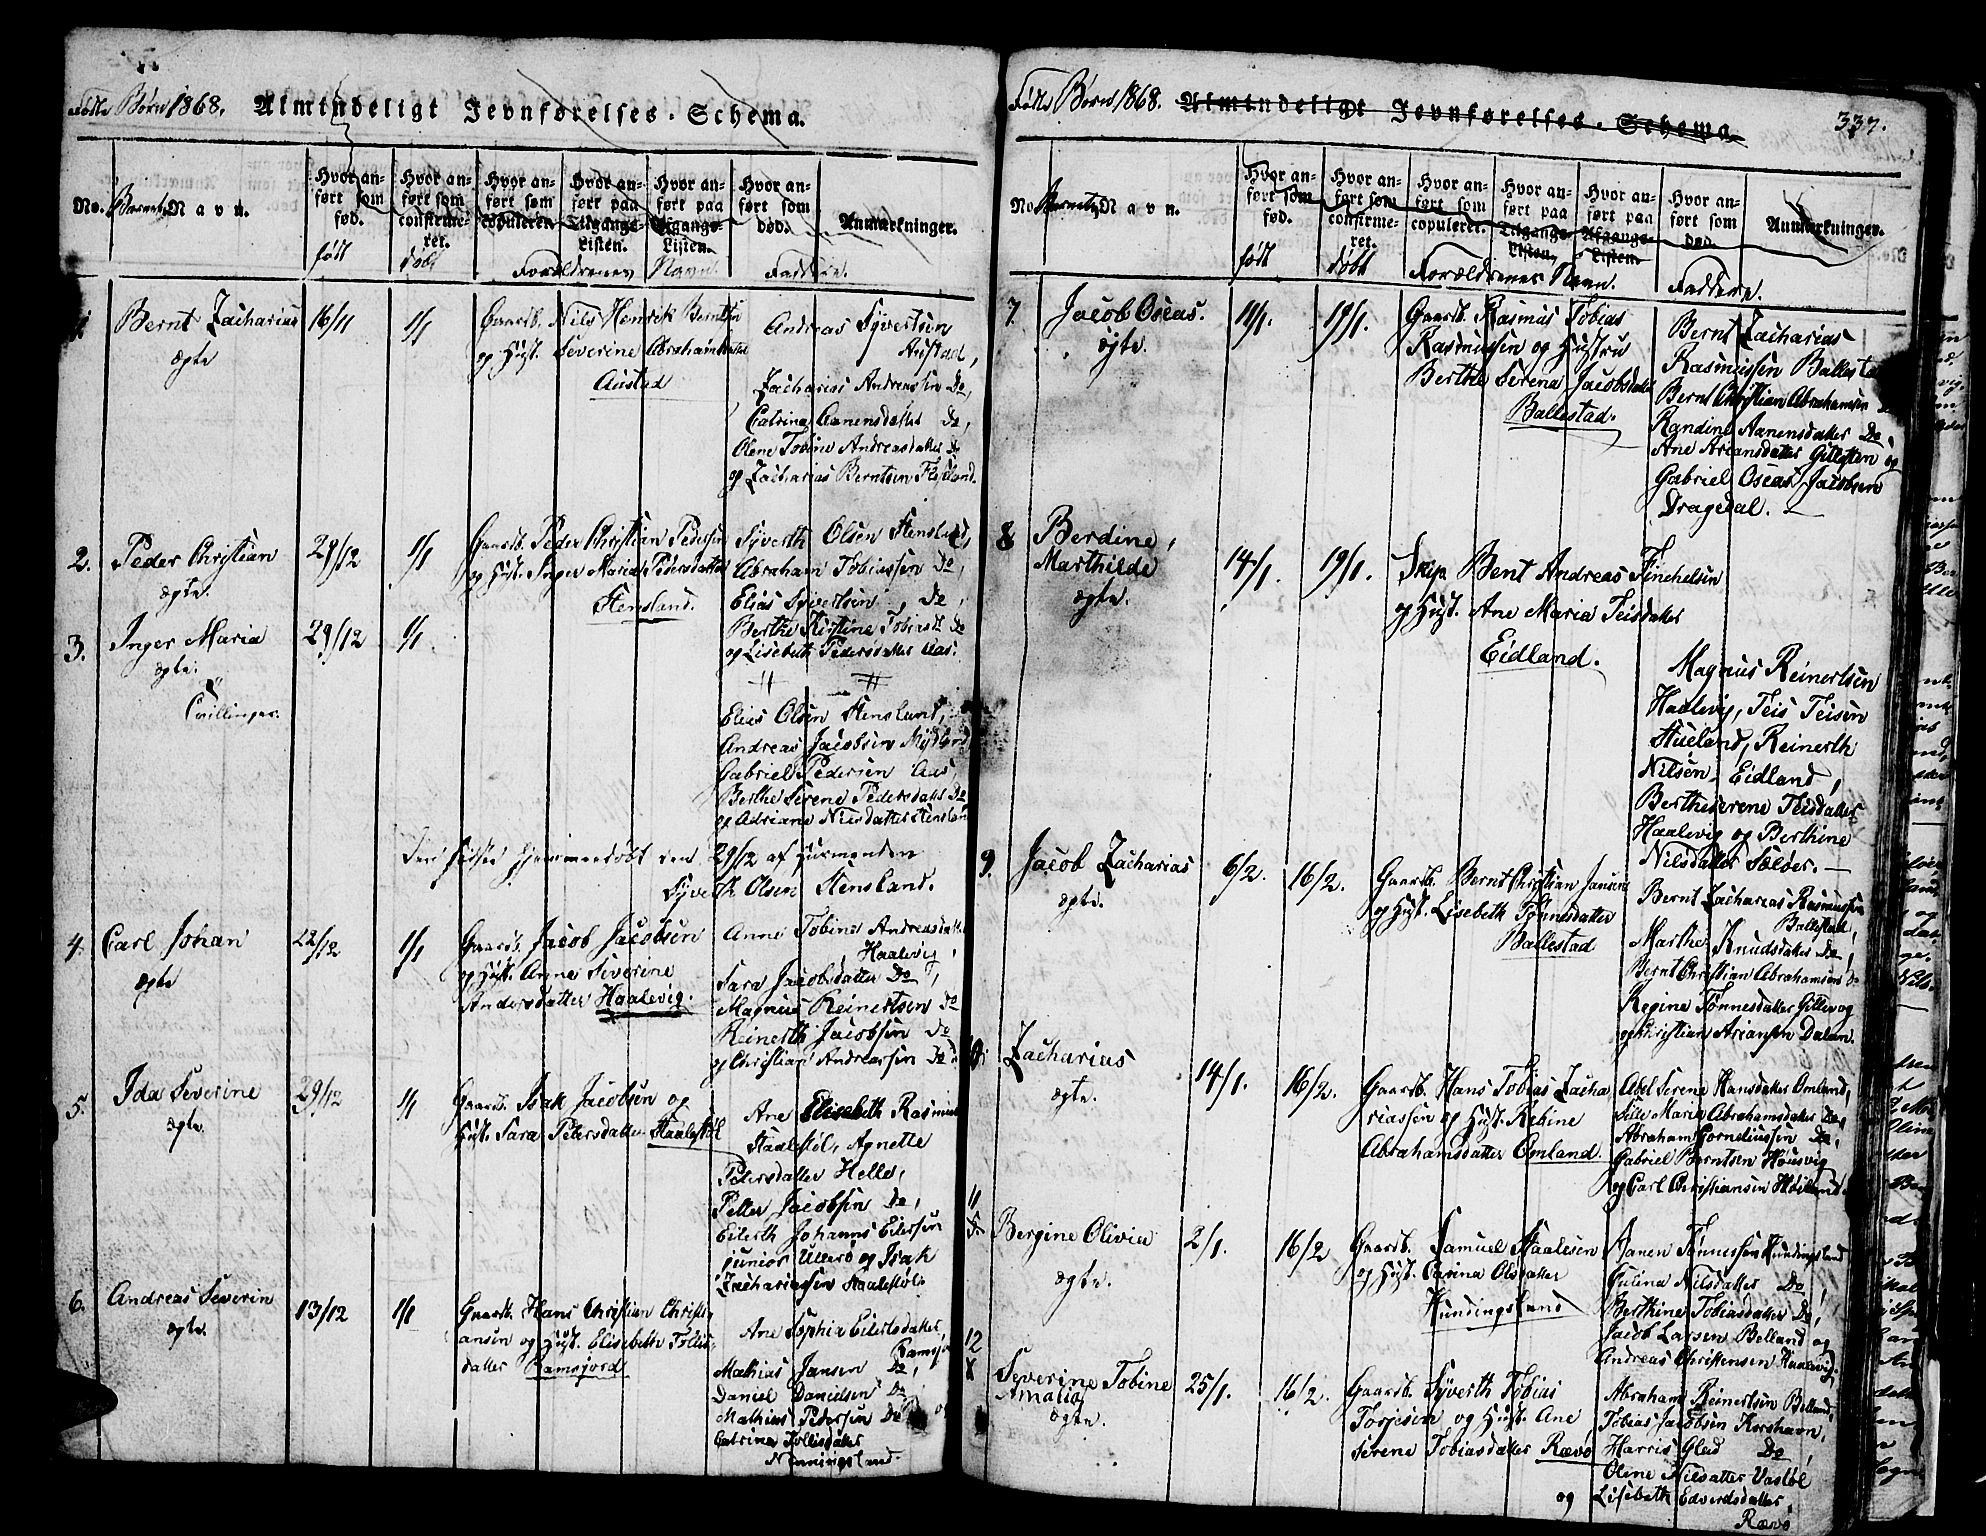 Fødte Børn 1868. Almindeligt Jevnførelses-Schema.
No. Barnets Navn.
Hvor anført som født.
Hvor anført som confirmeret.
Hvor anført som copuleret.
Hvor anført paa Tilgangs-Listen.
Hvor anført paa Afgangs-Listen.
Hvor anført som død.
Anmærkninger.
født døbt Forældrenes Navn. Faddere.
1 Bernt Zacharias 16/11 1/1 Gaardb. Nils Henrik Berntsen
ægte og Hust. Severine Abrahamsdatter
Austad
Andreas Syvertsen
Austad,
Zacharias Andreassen Do,
Catrine Aanensdatter Do,
Olene Tobine Andreasdatter Do
og Zacharias Berntsen
2. Peder Christian 29/12 1/1 Gaardb. Peder Christian Pedersen
ægte. og Hust. Inger Maria Pedersdatter
Stensland.
Syverth Olsen Stensland,
Abraham Tobiassen Do,
Elias Syvertsen Do,
Berthe Kirstine Tobiasd. Do
og Lisebeth Pedersdatter Aas.
3. Inger Maria 29/12 1/1
ægte.
Tvillinger.
Elias Olsen Stensland,
Andreas Jacobsen Mydland
Gabriel Pedersen Aas,
Berthe Serene Pedersdatter Do
og Adriane Nilsdatter Stensland
hjemmedøbt den 29/12 af
Syverth Olsen Stensland.
4. Carl Johan 22/12 1/1 Gaardb. Jacob Jacobsen
ægte og Hust. Anne Severine
Andersdatter Haalevig.
Anne Tobine Andreasdatter
Haalevig,
Sara Jacobsdatter Do,
Magnus Reinertsen Do
Reinerth Jacobsen Do
og Christian Andreassen Do.
5. Ida Severine 29/12 1/1 Gaardb. Isak Jacobsen og
ægte. Hust. Sara Petersdatter Haalestøl
Ane Elisebeth Rasmusd.
Haalestøl, Agnette
Petersdatter Helle,
Petter Jacobsen Do,
Eilerth Johannes Eilersen
junior Ulverø og Isak
Zachariassen Haalestøl.
6. Andreas Severin 13/12 1/1 Gaardb. Hans Christian Christi-
ægte. ansen og Hust. Elisebeth Follis-
datter Ramsjord
Ane Sophia Eilertsdatter,
Mathias Jansen Do,
Daniel Danielsen Do
Mathias Pedersen Do og
Catrine Follisdatter
Fødte Børn 1868. Almindeligt Jevnførelses-Schema. 337.
No. Barnets Navn.
Hvor anført som født.
Hvor anført som confirmeret.
Hvor anført som copuleret.
Hvor anført paa Tilgangs-Listen.
Hvor anført paa Afgangs-Listen.
Hvor anført som død.
Anmærkninger.
født døbt Forældrenes Navn. Faddere.
7. Jacob Oseas. 19/1. Gaardb. Rasmus Tobias
ægte. Rasmussen og Hustru
Berthe Serena Jacobsdatter
Ballestad.
Bernt Zacharias
Rasmussen Ballestad
Bernt Christian Abrahamsen
Randine Aanensdatter Do,
Ane Ariansdatter og
Gabriel Oseas Jacobsen
Dragedal.
8 Berdine, 14/1. 19/1. Skip. Bent Andreas
Marthilde og Hust. Ane Maria Teisdatter
ægte. Eidland.
Magnus Reinertsen
Haalevig, Teis Teisen
Stueland, Reinerth
Nilsen Eidland,
Bertheserene Teisdatter
Haalevig og Berthine
Nilsdatter Sælver.
9. Jacob Zacharias 6/2. 16/2. Gaardb. Bernt Christian Jansen
ægte. og Hust. Lisebeth Tønnesdatter
Ballestad
Bernt Zacharias Rasmussen
Ballestad,
Marthe Knudsdatter Do,
Bernt Christian Abrahamsen Do
Regine Tønnesdatter
og Christian Ariansen Dalan.
10. Zacharias 14/1. 16/2. Gaardb. Hans Tobias Zacha
ægte. riassen og Hust. Regine
Abrahamsdatter Omland.
Abel Serene Hansdatter Omland,
Sille Maria Abrahamsdatter Do,
Abraham Corneliussen Do,
Gabriel Berntsen
og Carl Christiansen
11 Bergine Olivia 2/1. 16/2 Gaardb. Samuel Haalesen
ægte. og Hust. Carina Olsdatter
Hundingsland
Aanen Tønnessen Hundingsland
Gulina Nilsdatter Do,
Berthine Tobiasdatter Do,
Jacob Larsen Belland og
Andreas Christensen Haalevig.
12 Severine Tobine 25/1. 16/2. Gaardb. Syverth Tobias
Amalia Torjesen og Hust. Ane
ægte. Serene Tobiasdatter Rævø
Abraham Reinertsen Belland,
Tobias Jacobsen Korshavn,
Harris Do
Oline Nilsdatter
og Lisebeth Edverdsdatter,
Rævø